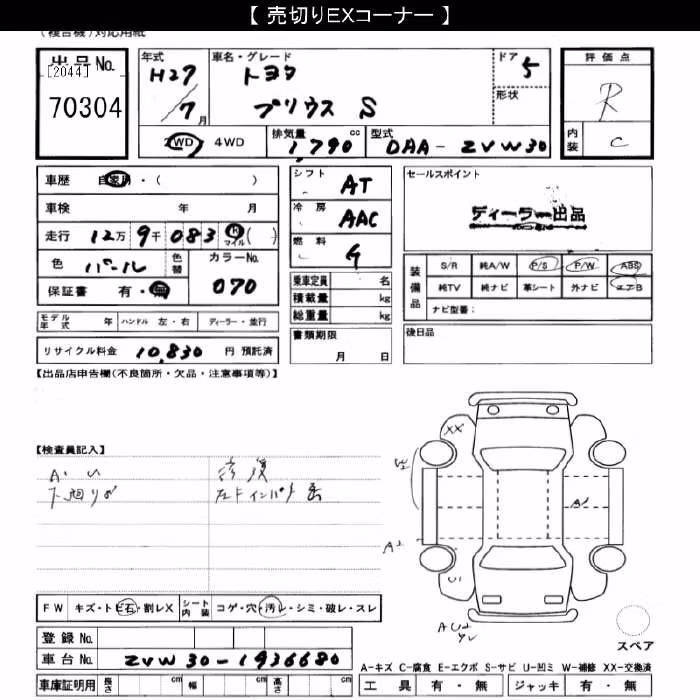 【 売切りEXコーナー 】
(複合機)対応用紙
出品No.
[2044]
70304
年式 H27/7月
車名・グレード トヨタ
プリウス S
ドア 5
形状
2WD・4WD
排気量 1790 cc
型式 DAA-ZVW30
評価点 R
内装 C
車歴 自家用・( )
車検 年 月
走行 12万 9千 083 km マイル( )
色 パール 色替
カラーNo. 070
保証書 有・無
シフト AT
冷房 AAC
燃料 G
乗車定員 名
積載量 kg
総重量 kg
セールスポイント
ディーラー出品
装備品
S/R 純A/W P/S P/W ABS
純TV 純ナビ 革シート 外ナビ エアB
ナビ型番：
モデル年式 年 ハンドル 左・右 ディーラー・並行
リサイクル料金 10,830 円 預託済
書類期限
月 日
後日品
【出品店申告欄(不良箇所・欠品・注意事項等)】
【検査員記入】
A・U
下廻りサビ
修復
左Fインパネ
XX
W2
A1
A2
U1
AU2
FW キズ・トビ石・割レX
シート内装 コゲ・穴・汚レ・シミ・破レ・スレ
登録No.
車台No. ZVW30-1936680
車庫証明用 長さ cm 幅 cm 高さ cm
スペア
A-キズ C-腐食 E-エクボ S-サビ U-凹ミ W-補修 XX-交換済
工具 有・無 ジャッキ 有・無